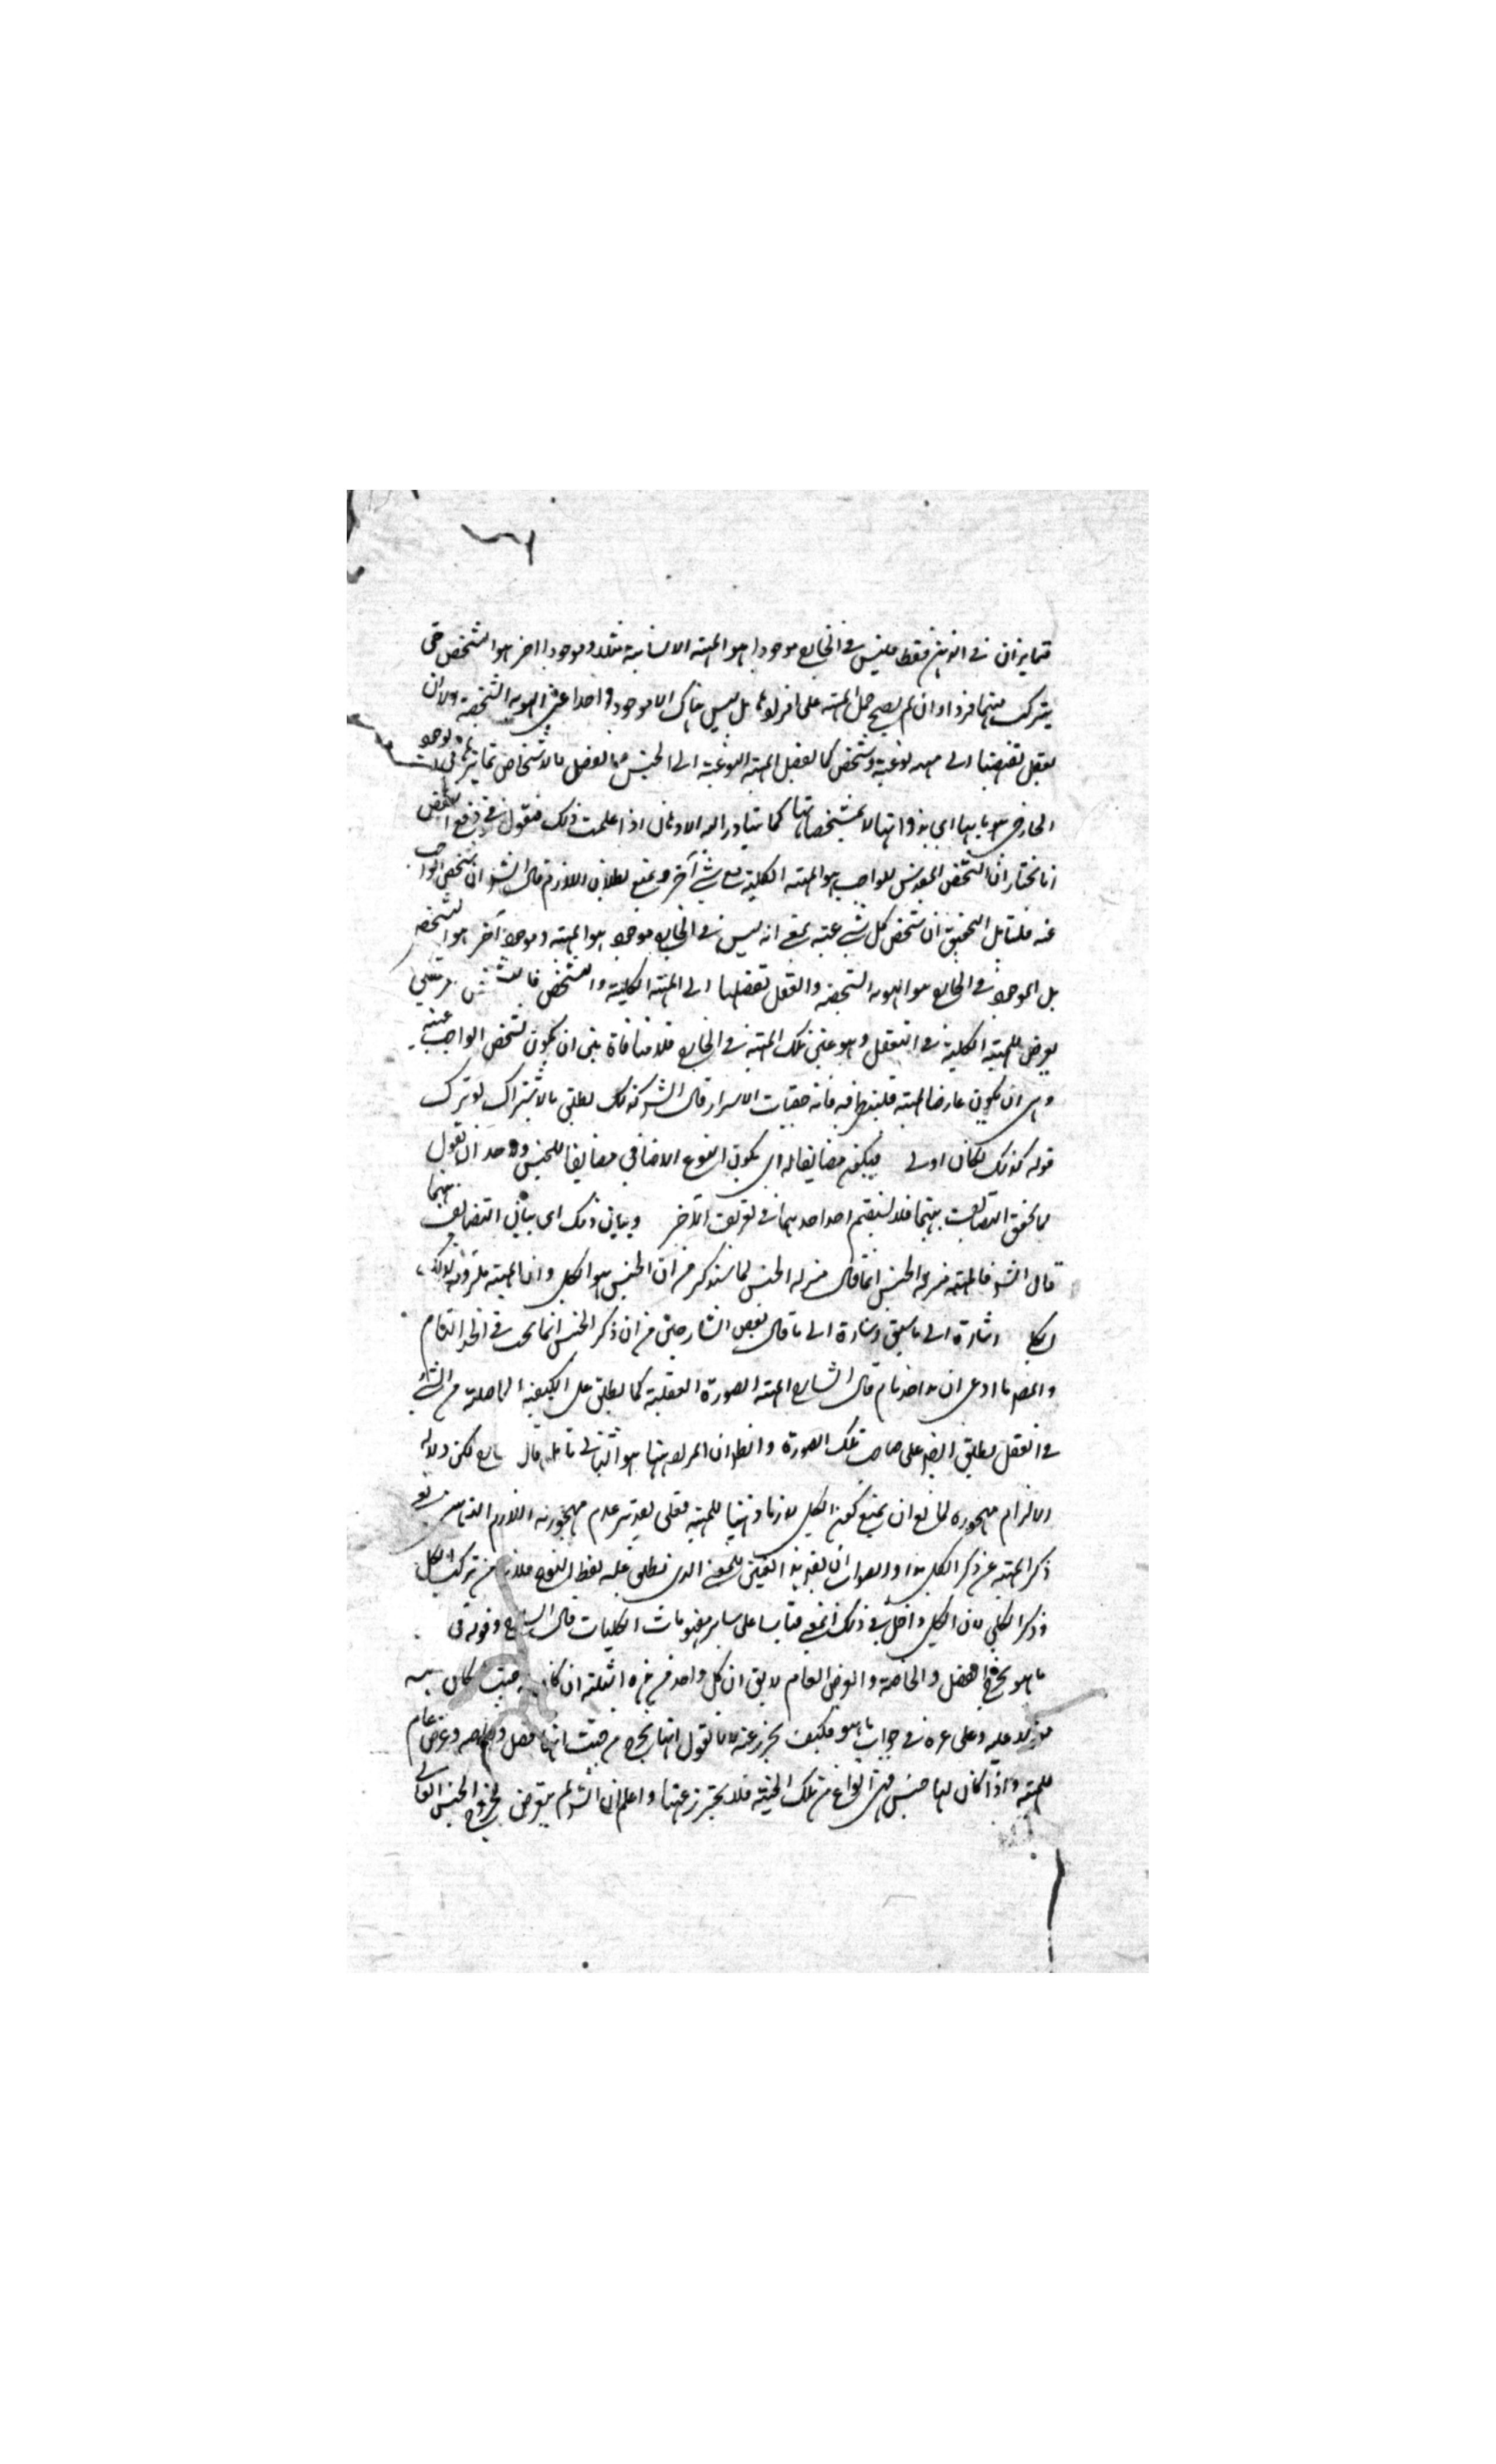 متمايزان في الذهن فقط فليس في الخارج موجودا هو المهية الانسانية مثلا وموجودا اخر هو التشخص حتى
يتركب منهما فرد او ان لم يصح حمل المهية على افرادها بل ليس هناك الا موجود واحد اعني الهوية الشخصية الا ان
العقل يفصلها الى مهية نوعية وتشخص كما يفصل المهية النوعية الى الجنس والفصل فالاشخاص تمايزها في الوجود
الخارجي بهوياتها اي بذواتها لا بمشخصاتها كما يتبادر اليه الاوهام اذا علمت ذلك فنقول في دفع النقض
انا نختار ان التشخص المقدس للواجب هو المهية الكلية مع شيء آخر ونمنع بطلان اللازم قال الش ان تشخص الواجب
عينه فلنا بل التحقيق ان تشخص كل شيء عينه بمعنى انه ليس في الخارج موجود هو المهية وموجود آخر هو التشخص
بل الموجود في الخارج هو الهوية الشخصية والعقل يفصلها الى المهية الكلية والتشخص فالتشخص
يعرض للمهية الكلية في التعقل وهو عين تلك المهية في الخارج فلا منافاة بين ان يكون تشخص الواجب عينه
وبين ان يكون عارضا لمهيته فليتدبر فيه فانه من خفيات الاسرار قال الش كذلك يطلق بالاشتراك لو ترك
قوله كذلك لكان اولى فيكون مضايفا له اي يكون النوع الاضافي مضايفا للجنس ولاحد ان يقول
لما تحقق التضايف بينهما فلا يستقيم اخذ احدهما في تعريف الآخر وبيان ذلك اي بيان التضايف بينهما
قال الش فالمهية منزلة الجنس انما قال منزلة الجنس لما سنذكر من ان الجنس هو الكلي وان المهية ملزومة لذلك
الكلي اشارة الى ما سبق واشارة الى ما قال بعض الشارحين من ان ذكر الجنس انما يجب في الحد التام
والمص ما ادعى ان هذا حد تام قال الشارح المهية الصورة العقلية كما يطلق على الكيفية الحاصلة من الشيء
في العقل يطلق ايضا على صاحب تلك الصورة والظ ان المراد هنا هو الثاني تامل قال الشارح لكن دلالة
الالتزام مهجورة لمانع ان يمنع كون الكلي لازما ذهنيا للمهية فعلى تقدير عدم مهجورية اللازم
ذكر المهية عن ذكر الكلي هذا والصواب ان يقيد هذا التعيين للمعنى الذي يطلق عليه لفظ النوع فلا بد من ترك الكل
وذكر الكلي لان الكلي داخل في ذلك المعنى قياسا على سائر مفهومات الكليات قال الشارح وقوله في
ما هو يخرج الفصل والخاصة والعرض العام لا يق ان كل واحد من هذه الثلثة ان كان له جنس لكان
مقولا عليه وعلى غيره في جواب ما هو فكيف يحترز عنه لانا نقول انها يخرج من حيث انها فصل وخاصة وعرض عام
للمهية واذا كان لها جنس فهي انواع من تلك الحيثية فلا يحترز عنها واعلم ان الش لم يتعرض لخروج الجنس العالي